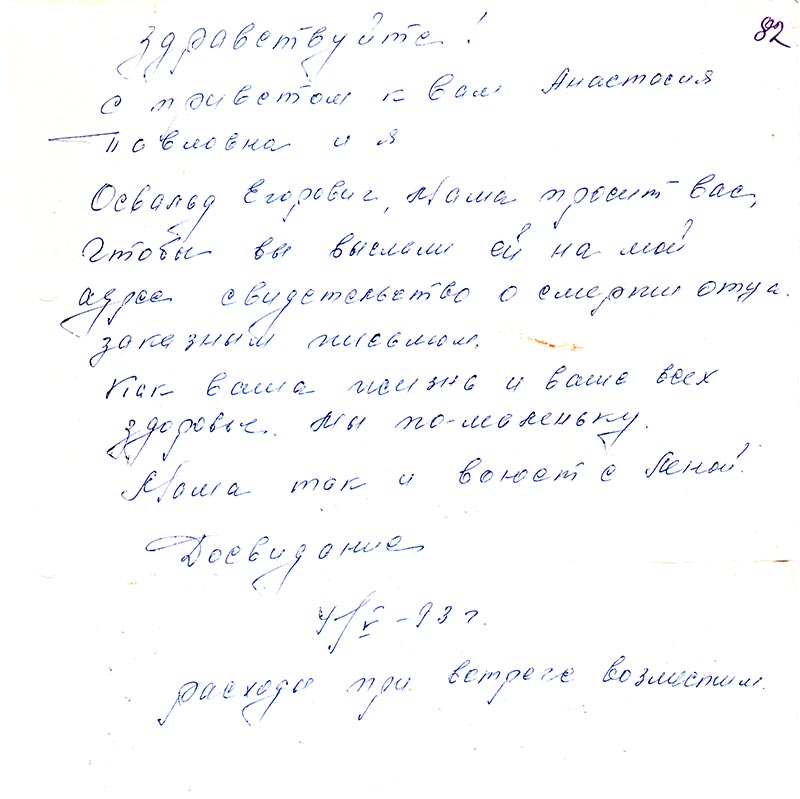 82
Здравствуйте!
с приветом к вам Анастасия
Павловна и я
Освальд Егорович, Мама просит вас,
чтобы вы выслали ей на мой
адрес свидетельство о смерти отца.
заказным письмом.
Как ваша жизнь и ваше всех
здоровье. Мы по-маленьку.
Мама так и воюет с Леной.
Досвидание
4/V-93 г.
расходы при встрече возместим.